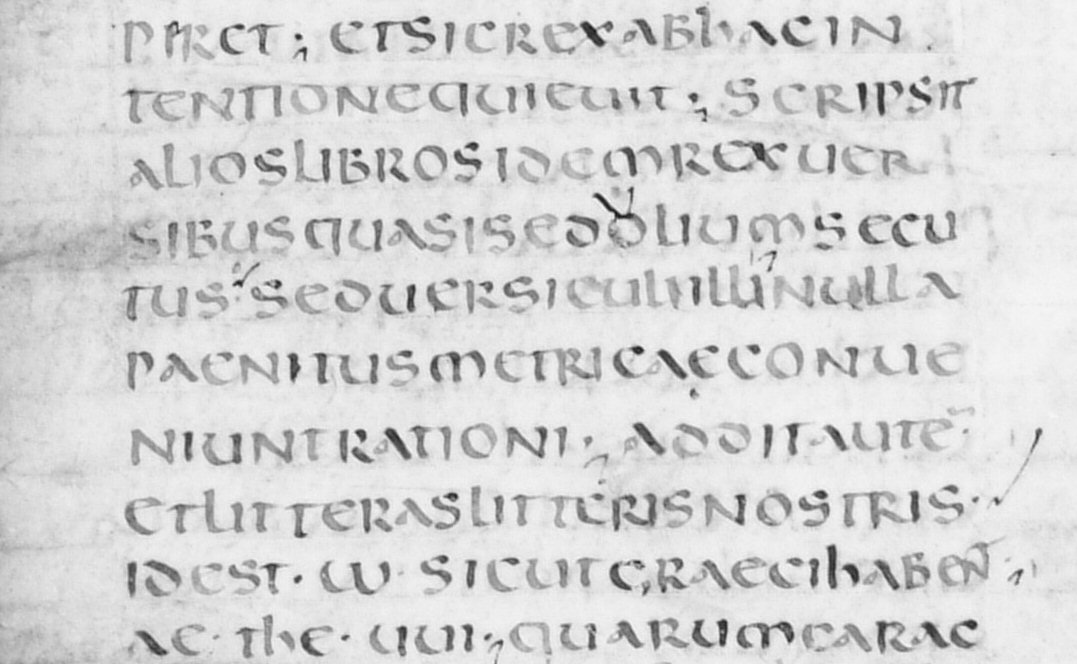 PERET ; ETSICREXABhACIN
TENTIONEQUIEUIT ; SCRIPSIT
ALIOSLIBROSIDEMREXUER
SIBUSQUASISEDOLIUMSECU
TUS ; SEDUERSICULIILLINULLA
PAENITUSMETRICAECONUE
NIUNTRATIONI ; ADDITAUTE̅ ·
ETLITTERASLITTERISNOSTRIS ·
IDEST · ω · SICUTGRAECIhABENT ;
AE · ThE · UUI ; QUARUMCARAC